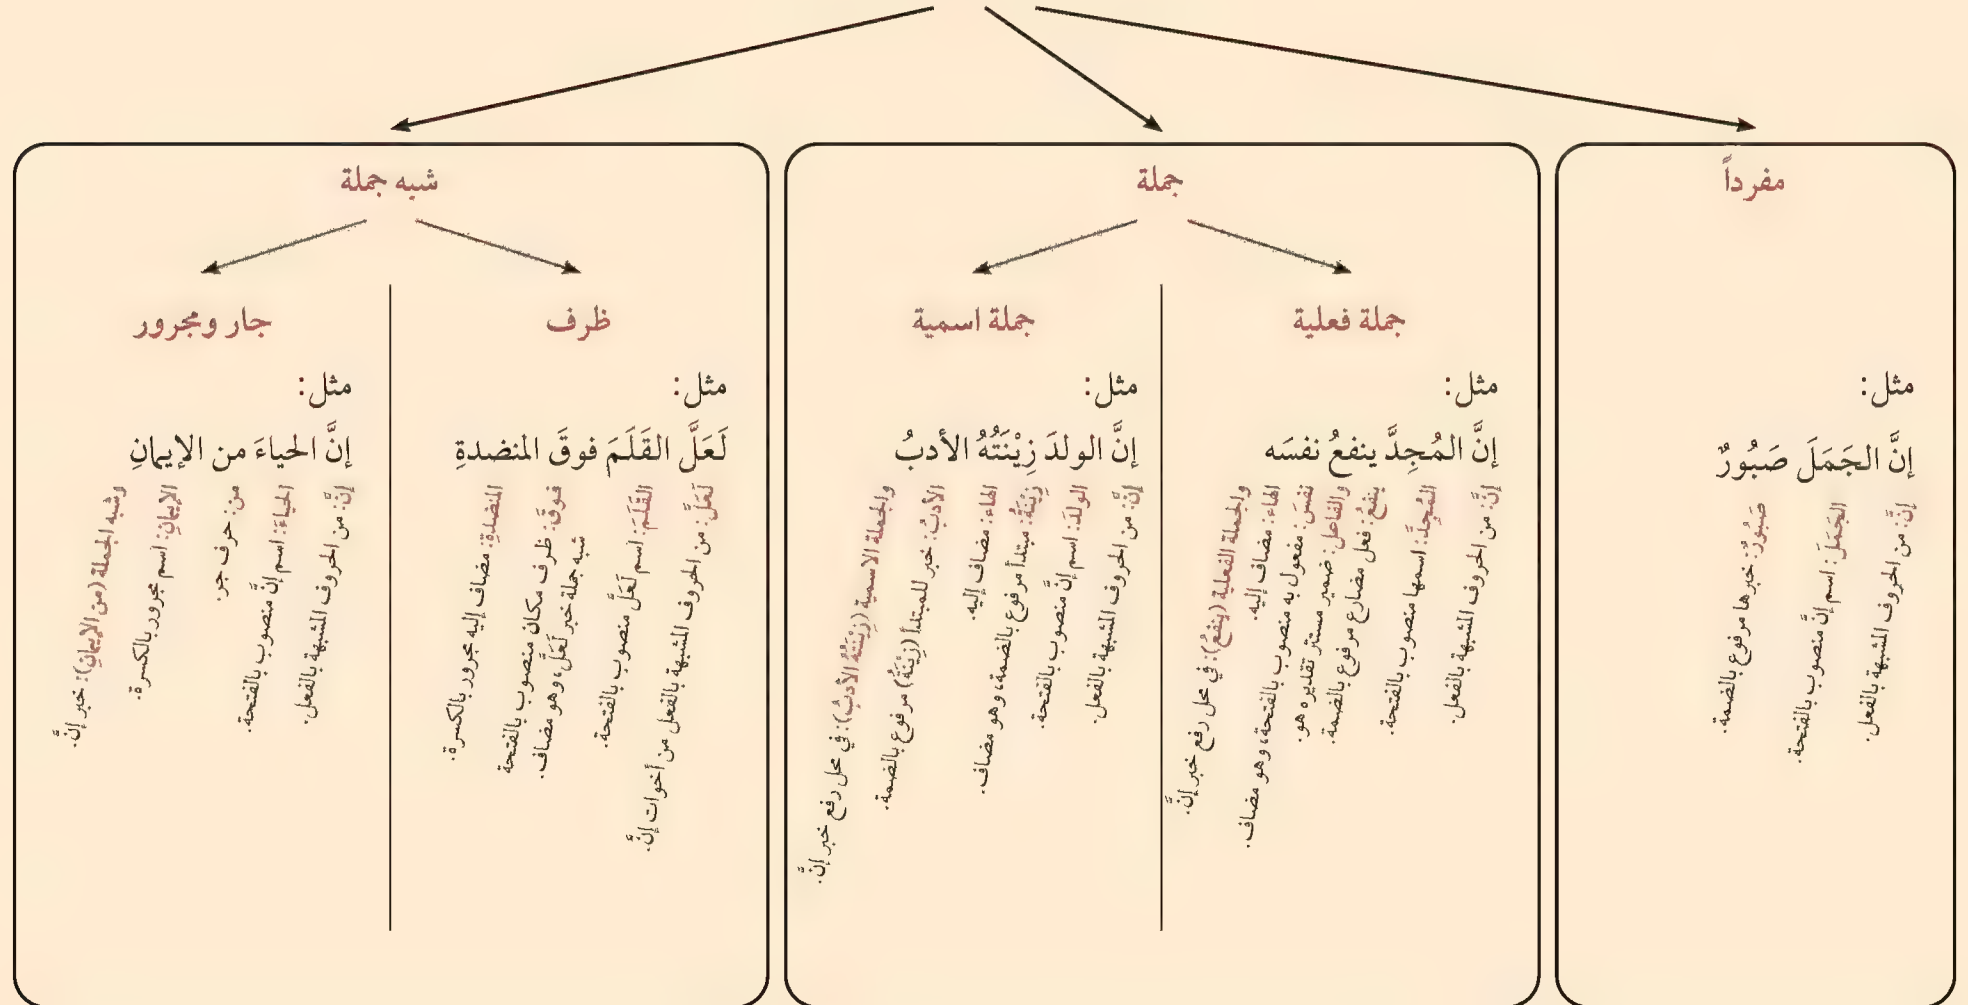 مفرداً
مثل:
إنَّ الجَمَلَ صَبُورٌ
إنَّ: من الحروف المشبهة بالفعل.
الجَمَلَ: اسم إنَّ منصوب بالفتحة.
صَبُورٌ: خبرها مرفوع بالضمة.
جملة
جملة فعلية
مثل:
إنَّ المُجِدَّ ينفعُ نفسَه
إنَّ: من الحروف المشبهة بالفعل.
المُجِدَّ: اسمها منصوب بالفتحة.
ينفعُ: فعل مضارع مرفوع بالضمة.
والفاعل: ضمير مستتر تقديره هو.
نفسَ: مفعول به منصوب بالفتحة، وهو مضاف.
الهاء: مضاف إليه.
والجملة الفعلية (ينفعُ): في محل رفع خبر إنَّ.
جملة اسمية
مثل:
إنَّ الولدَ زِيْنَتُهُ الأدبُ
إنَّ: من الحروف المشبهة بالفعل.
الولدَ: اسم إنَّ منصوب بالفتحة.
زِيْنَةُ: مبتدأ مرفوع بالضمة، وهو مضاف.
الهاء: مضاف إليه.
الأدبُ: خبر للمبتدأ (زِيْنَةُ) مرفوع بالضمة.
والجملة الاسمية (زِيْنَتُهُ الأدبُ): في محل رفع خبر إنَّ.
شبه جملة
ظرف
مثل:
لَعَلَّ القَلَمَ فوقَ المنضدةِ
لَعَلَّ: من الحروف المشبهة بالفعل من أخوات إنَّ.
القَلَمَ: اسم لَعَلَّ منصوب بالفتحة.
فوقَ: ظرف مكان منصوب بالفتحة
شبه جملة خبر لَعَلَّ، وهو مضاف.
المنضدةِ: مضاف إليه مجرور بالكسرة.
جار ومجرور
مثل:
إنَّ الحياءَ من الإيمانِ
إنَّ: من الحروف المشبهة بالفعل.
الحياءَ: اسم إنَّ منصوب بالفتحة.
من: حرف جر.
الإيمانِ: اسم مجرور بالكسرة.
وشبه الجملة (من الإيمانِ): خبر إنَّ.